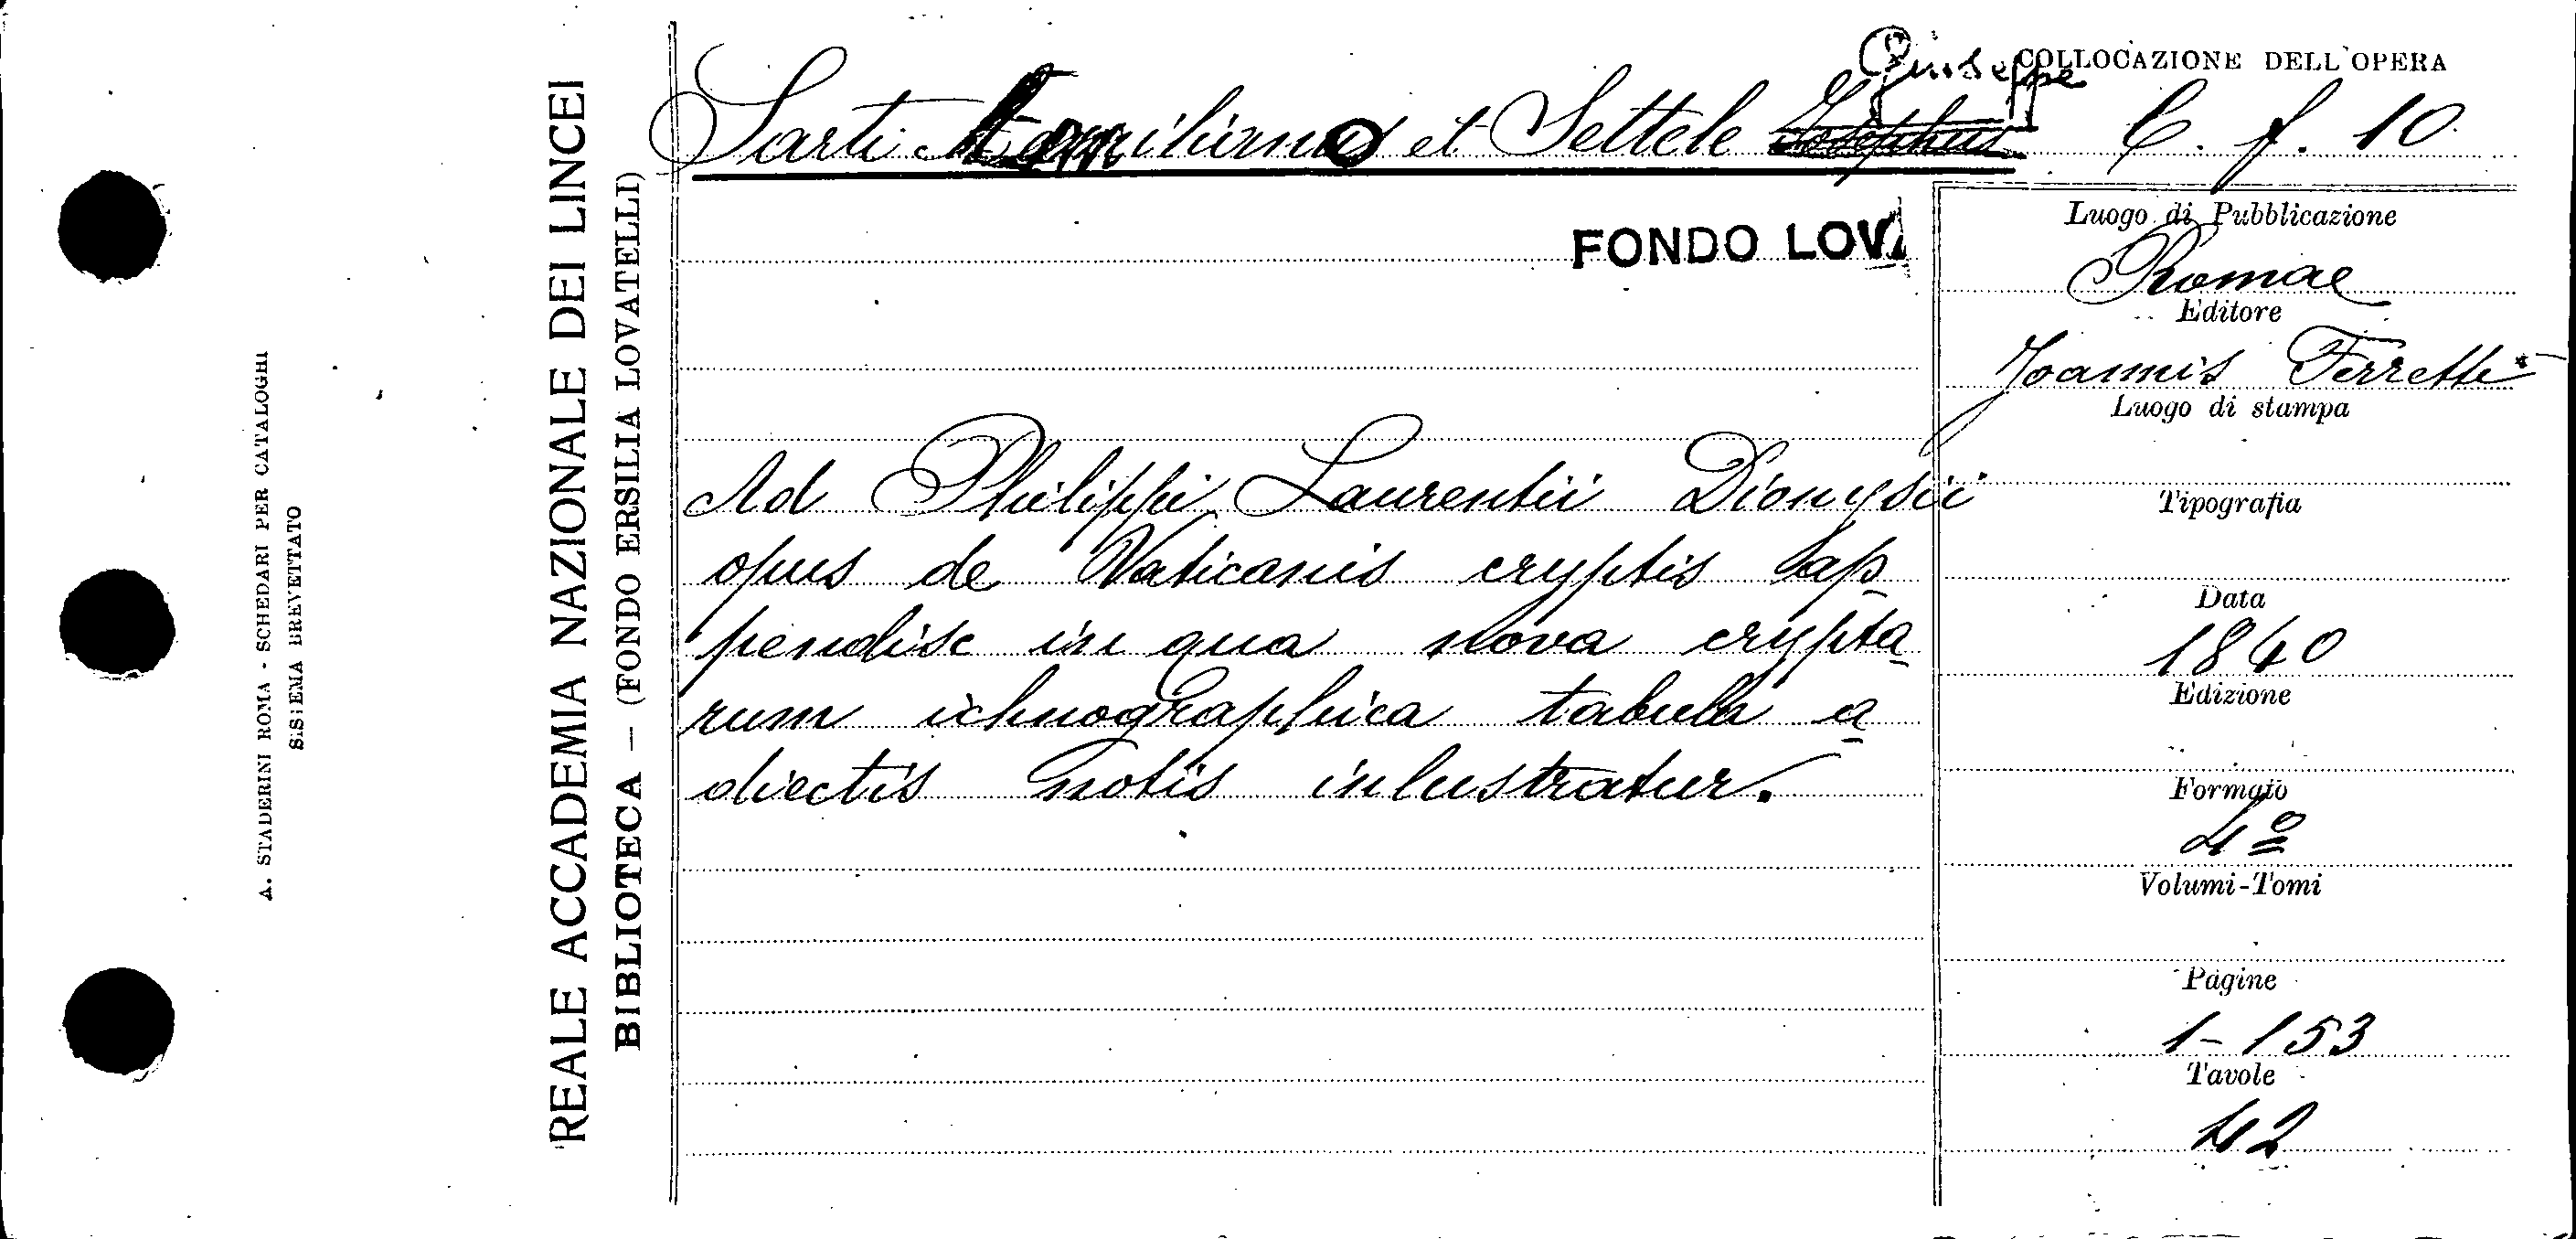 A. STADERINI ROMA - SCHEDARI PER CATALOGHI
SISTEMA BREVETTATO
REALE ACCADEMIA NAZIONALE DEI LINCEI
BIBLIOTECA — (FONDO ERSILIA LOVATELLI)
Giuseppe
COLLOCAZIONE DELL'OPERA
Sarti Emiliano et Settele Josephus
C. f. 10
FONDO LOVA
Luogo di Pubblicazione
Romae
Editore
Joannis Ferretti
Luogo di stampa
Ad Philippi Laurentii Dionysii
opus de Vaticanis cryptis ap-
pendisc in qua nova crypta-
rum ichnographica tabula a-
diectis notis inlustratur.
Tipografia
Data
1840
Edizione
Formato
4º
Volumi-Tomi
Pagine
1-153
Tavole
42